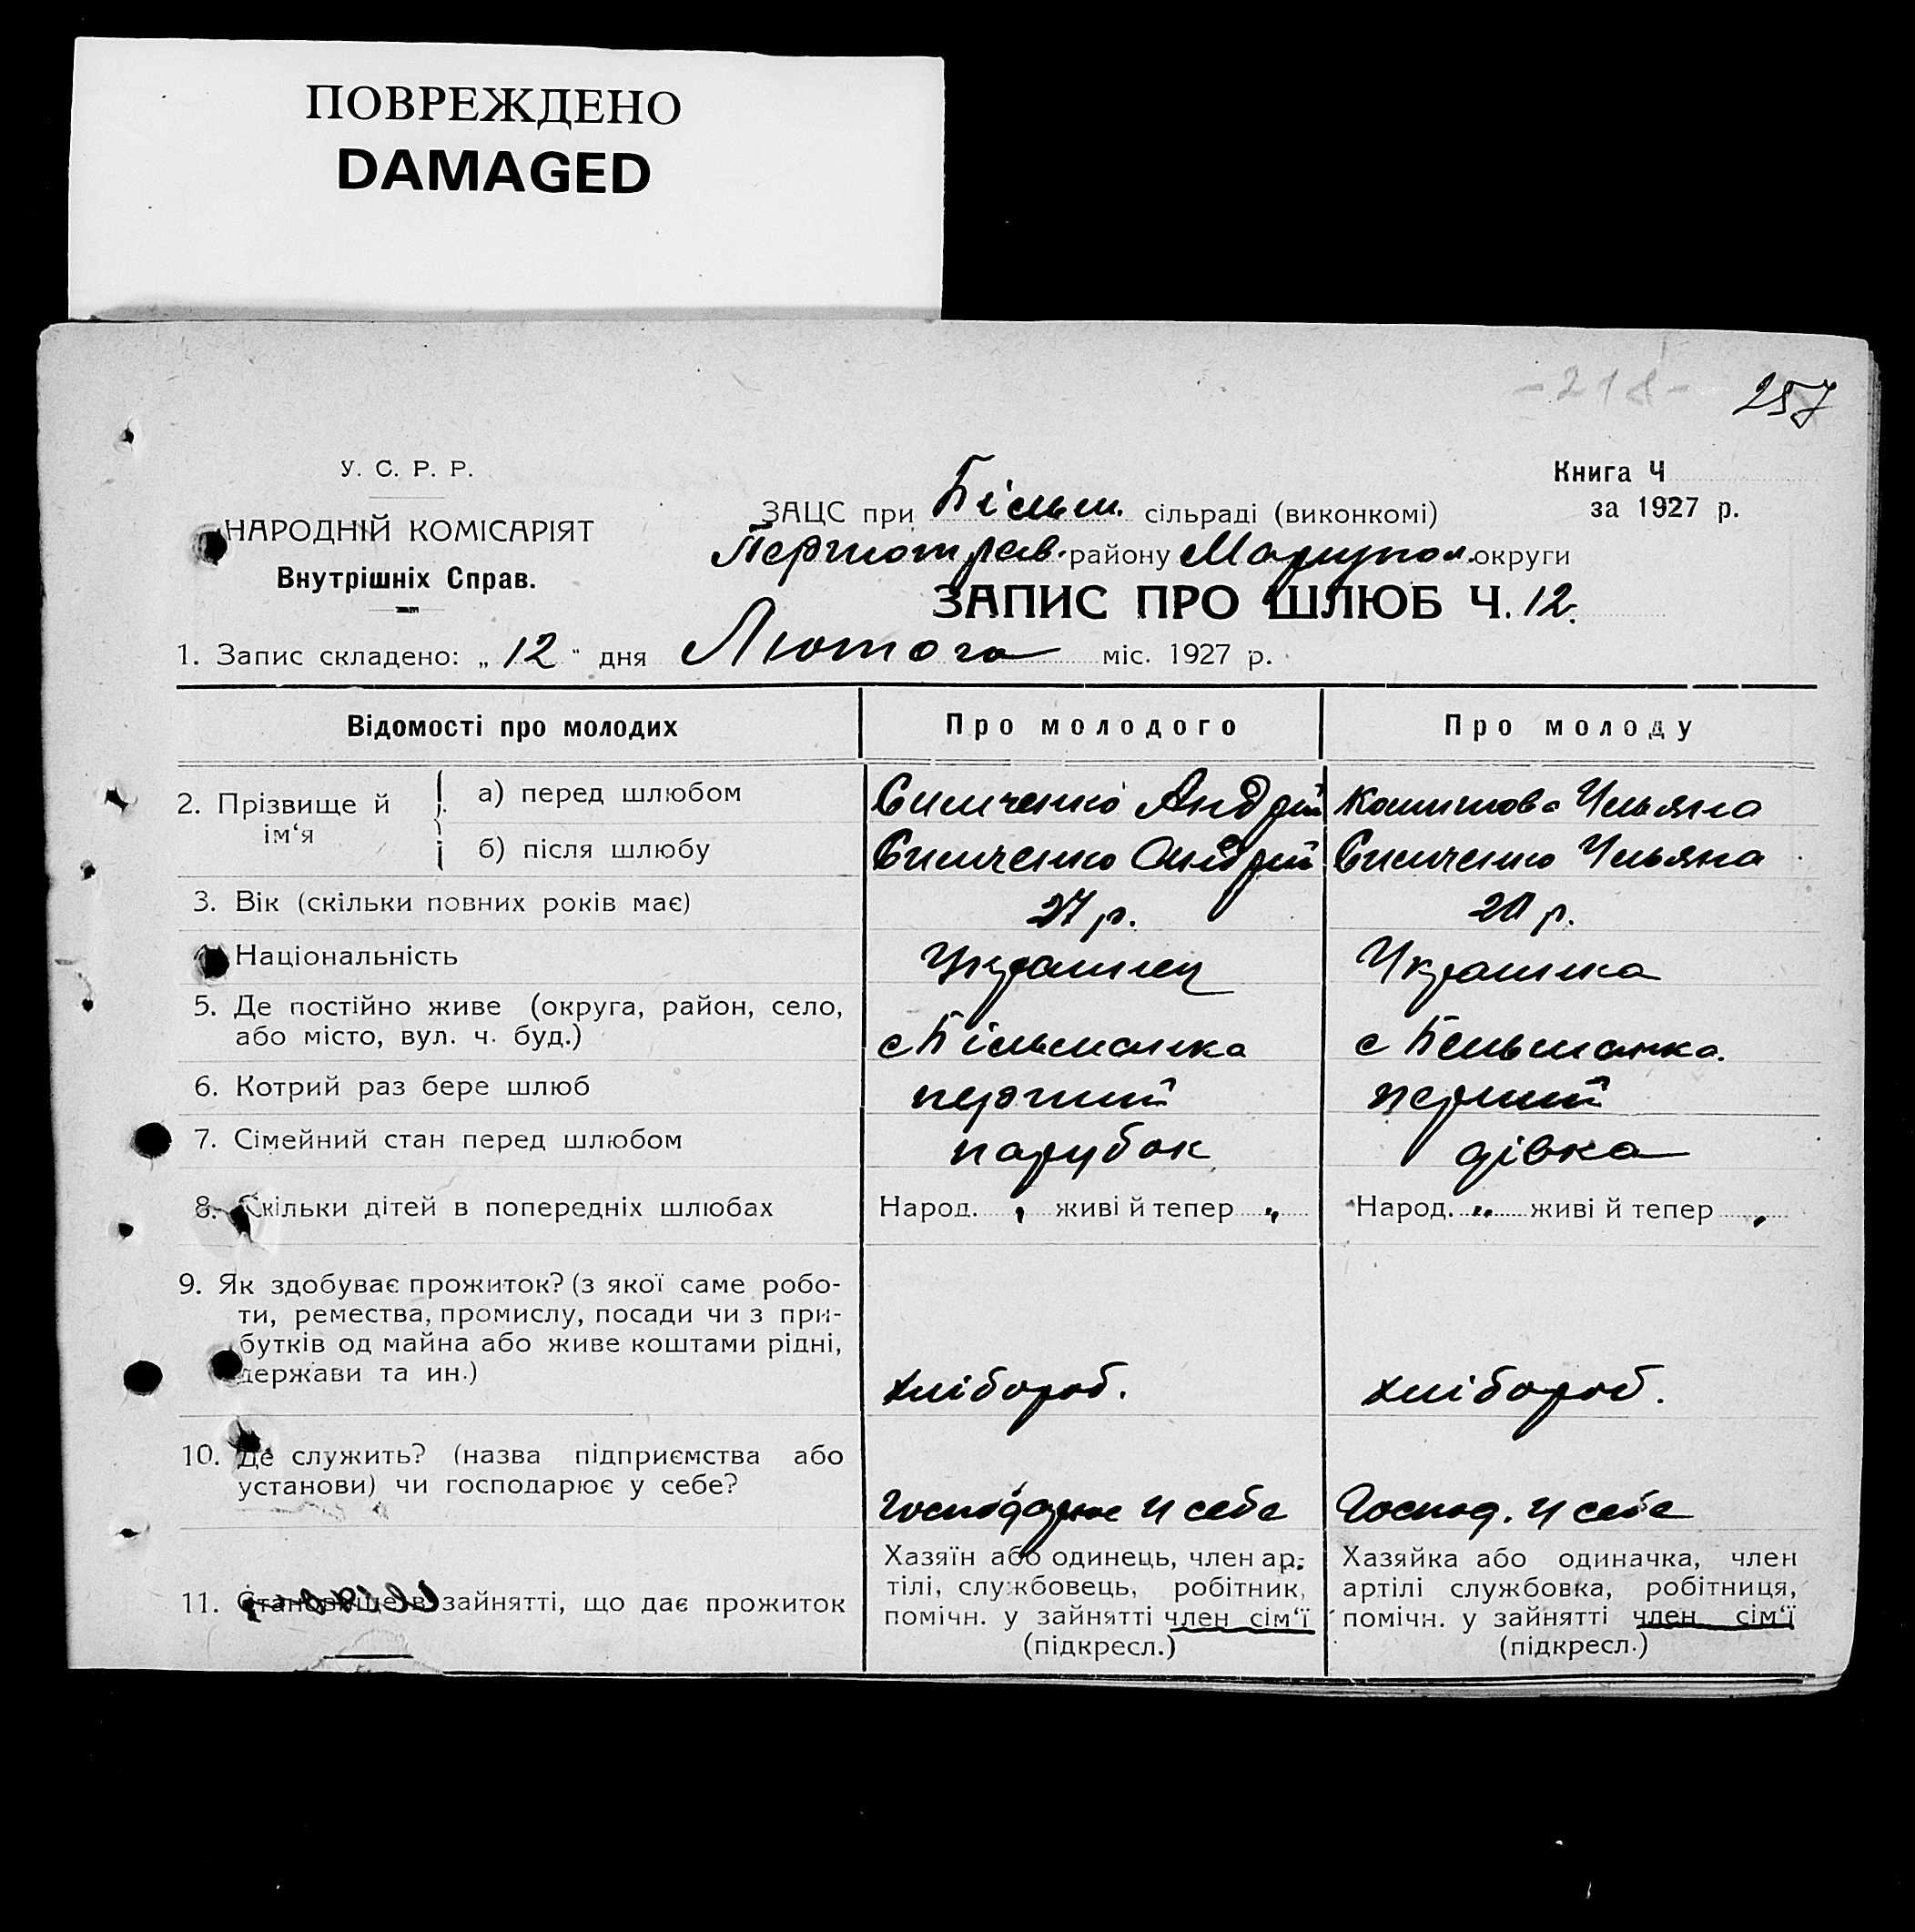 ПОВРЕЖДЕНО
DAMAGED
-218-
257
У. С. Р. Р.
НАРОДНІЙ КОМІСАРІЯТ
Внутрішніх Справ.
Книга Ч
за 1927 р.
ЗАЦС при Більм. сільраді (виконкомі)
Першотрав. району Маріупол. округи
ЗАПИС ПРО ШЛЮБ Ч. 12.
1. Запис складено: „ 12 " дня Лютого міс. 1927 р.
Відомості про молодих Про молодого Про молоду
2. Прізвище й ім‘я
а) перед шлюбом Андрій Ульяна
б) після шлюбу Андрій Ульяна
3. Вік (скільки повних років має) 27 р. 20 р.
Національність Украинец Украинка
5. Де постійно живе (округа, район, село,
або місто, вул. ч. буд.) с Більманка с Бельманка.
6. Котрий раз бере шлюб перший перший
7. Сімейний стан перед шлюбом парубок дівка
8. Скільки дітей в попередніх шлюбах Народ. „ живі й тепер „ Народ. „ живі й тепер „
9. Як здобуває прожиток? (з якої саме робо-
ти, ремества, промислу, посади чи з при-
бутків од майна або живе коштами рідні,
держави та ин.) хлібороб. хлібороб.
10. Де служить? (назва підприємства або
установи) чи господарює у себе? Господарює у себе Господ. у себе
11. Становище в зайнятті, що дає прожиток
Хазяїн або одинець, член ар-
тілі, службовець, робітник,
помічн. у зайнятті член сім‘ї
(підкресл.)
Хазяйка або одиначка, член
артілі службовка, робітниця,
помічн. у зайнятті член сім‘ї
(підкресл.)